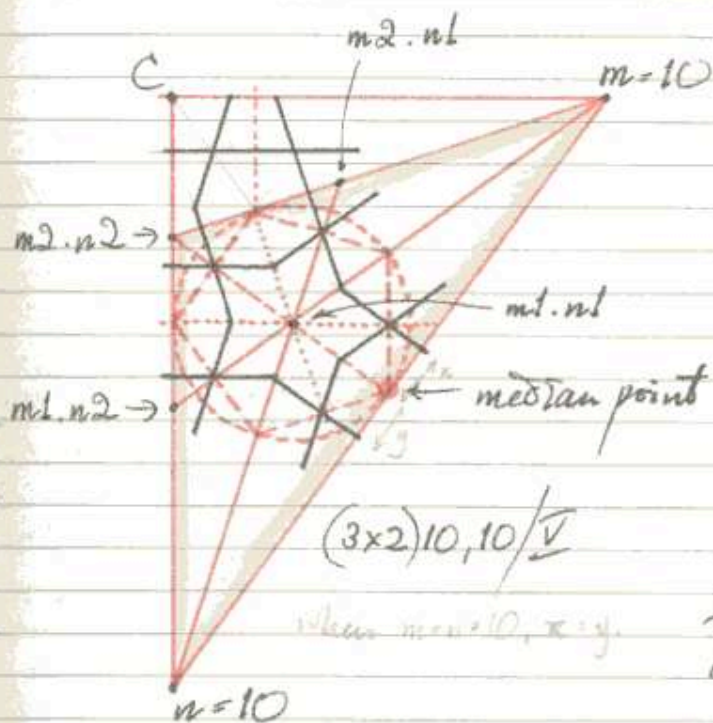 m2.n1
C
m=10
m2.n2→
m1.n1
m1.n2→
median point
x
y
(3x2)10,10/V
when m=n=10, x=y.
n=10